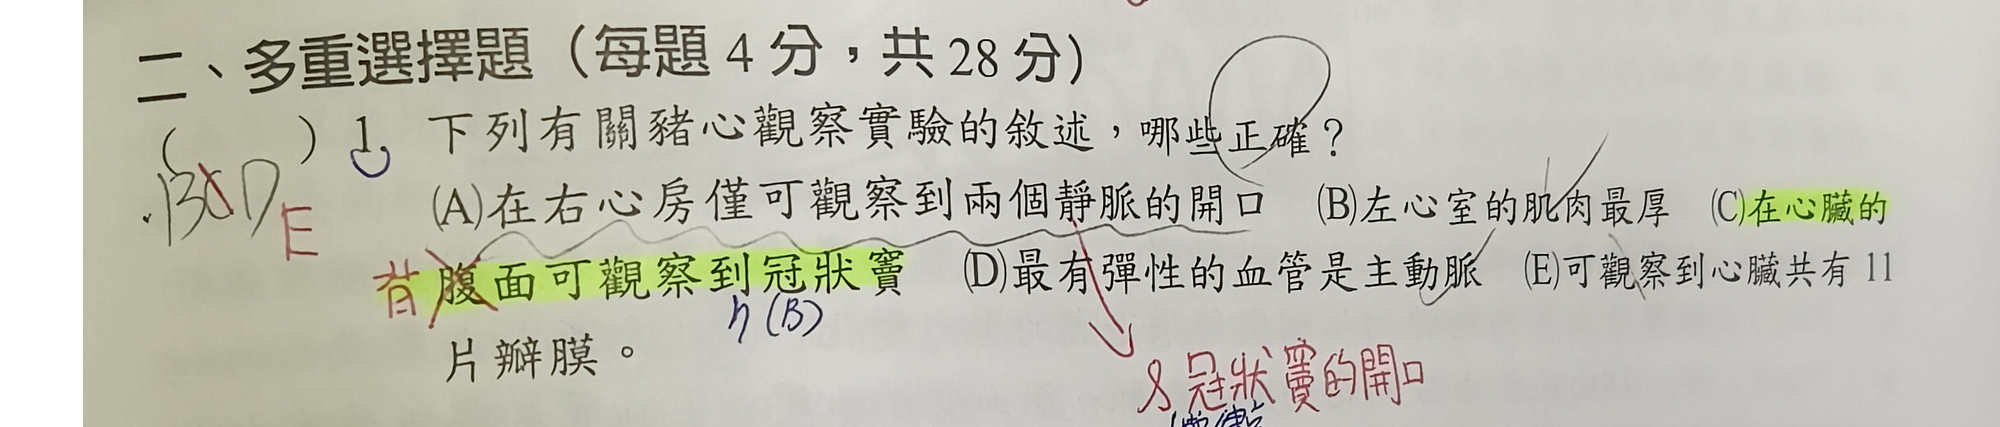 二、多重選擇題（每題 4 分，共 28 分）
(BCD E) 1. 下列有關豬心觀察實驗的敘述，哪些正確？
(A)在右心房僅可觀察到兩個靜脈的開口 (B)左心室的肌肉最厚 (C)在心臟的
背 腹面可觀察到冠狀竇 (D)最有彈性的血管是主動脈 (E)可觀察到心臟共有 11
片瓣膜。
(B)
冠狀竇的開口